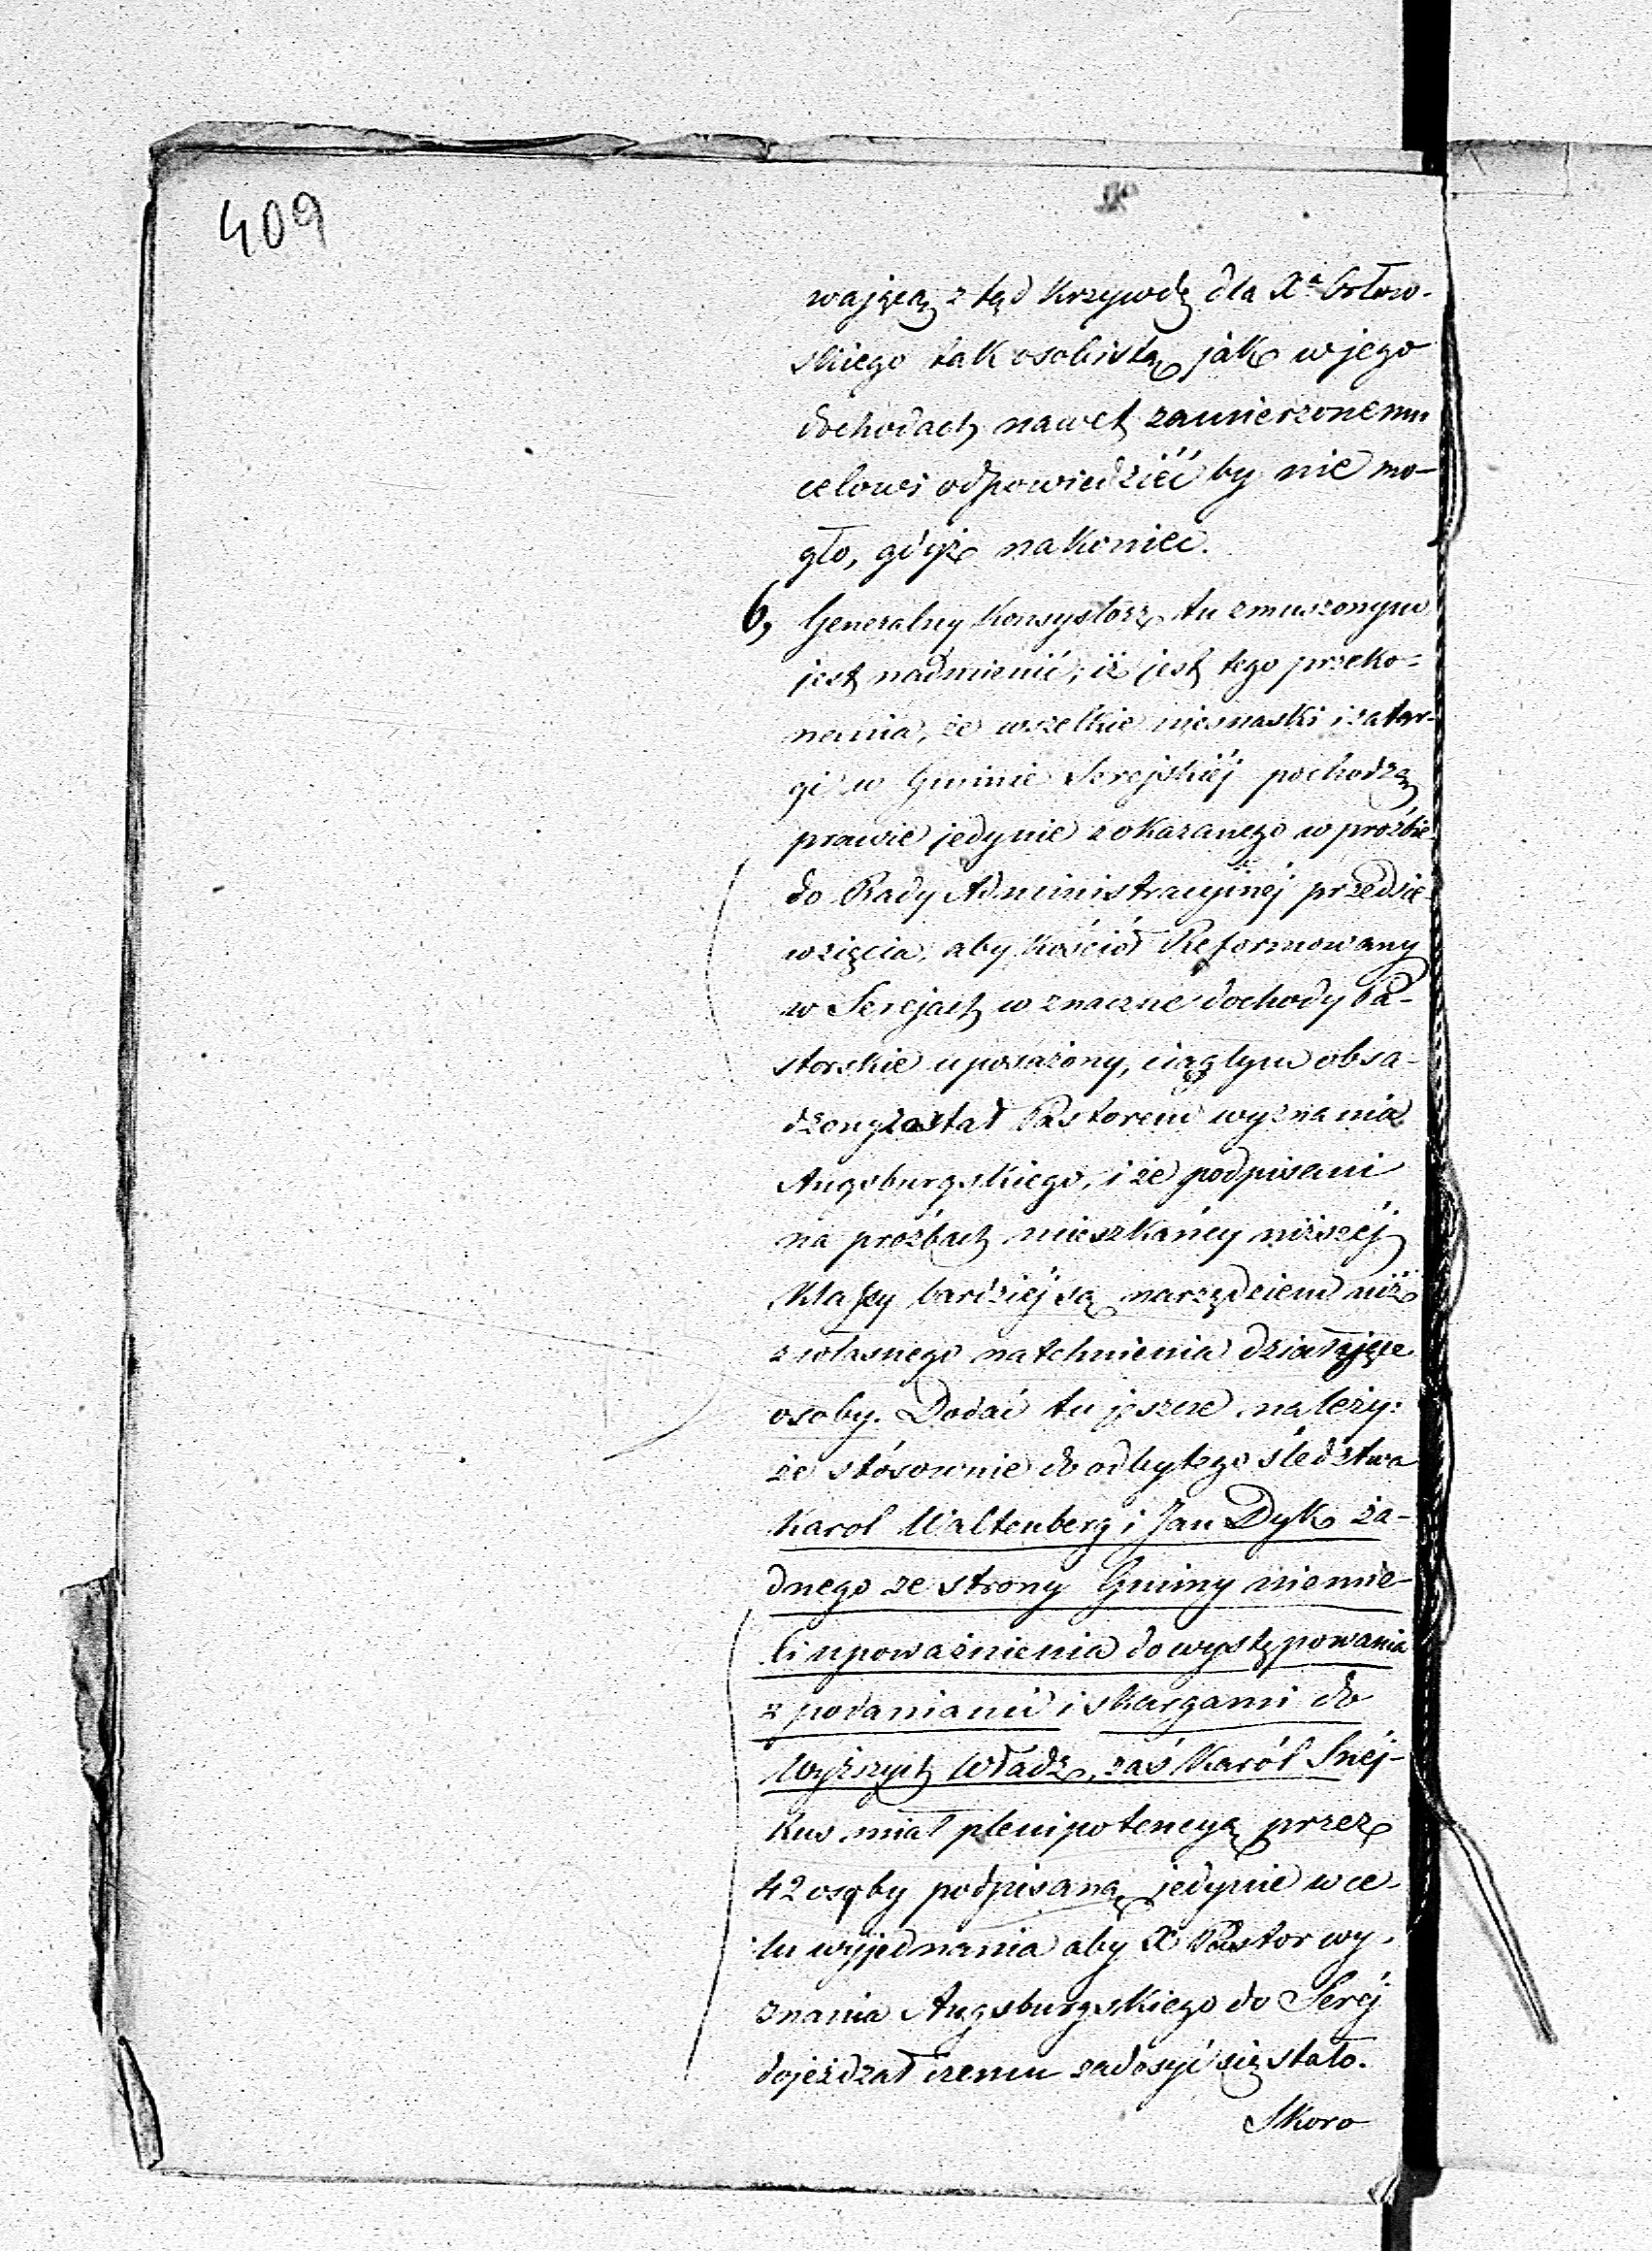 409
wającą z tąd Krzywdę dla Xa Orłow-
skiego tak osobistą jak w jego
dochodach nawet zamierzonemu
celowi odpowiedzićć by nie mo-
gło, gdyż nakoniec.
6, Generalny Konsystorz tu zmuszonym
jest nadmienić, iż jest tego przeko-
nania, że wszelkie niesnaski i zatar-
gi w Gminie Serejskiéj pochodzą
prawie jedynie z okazanego w proźbie
do Rady Administracyjnéj przedsie-
wzięcia, aby Kościół Reformowany
w Serejach w znaczne dochody Pa-
storskie uposażony, ciągłym obsa-
dzony został Pastorem wyznania
Augsburgskiego, i że podpisani
na proźbach mieszkańcy niższéj
Klassy bardziéj są narzędziem niż
z własnego natchnienia działające
osoby. Dodać tu jeszcze należy:
że stósownie do odbytego śledztwa
Karol Waltenberg i Jan Dyk ża-
dnego ze strony Gminy niemie-
li upoważnienia do występowania
z podaniami i skargami do
Wyższych Władz, zaś Karól Snej-
kus miał plenipotencyą przez
42 osoby podpisaną jedynie w ce-
lu wyjednania aby X Pastor wy-
znania Augsburgskiego do Seréj
dojeżdzał czemu zadosyć się stało.
Skoro